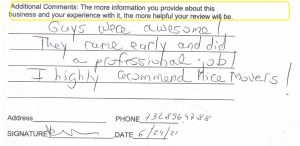 Additional Comments: The more information you provide about this
business and your experience with it, the more helpful your review will be.
Guys were awesome!
They came early and did
a professional job!
I highly recommend Nice Movers!
Address PHONE
SIGNATURE DATE 6/24/21